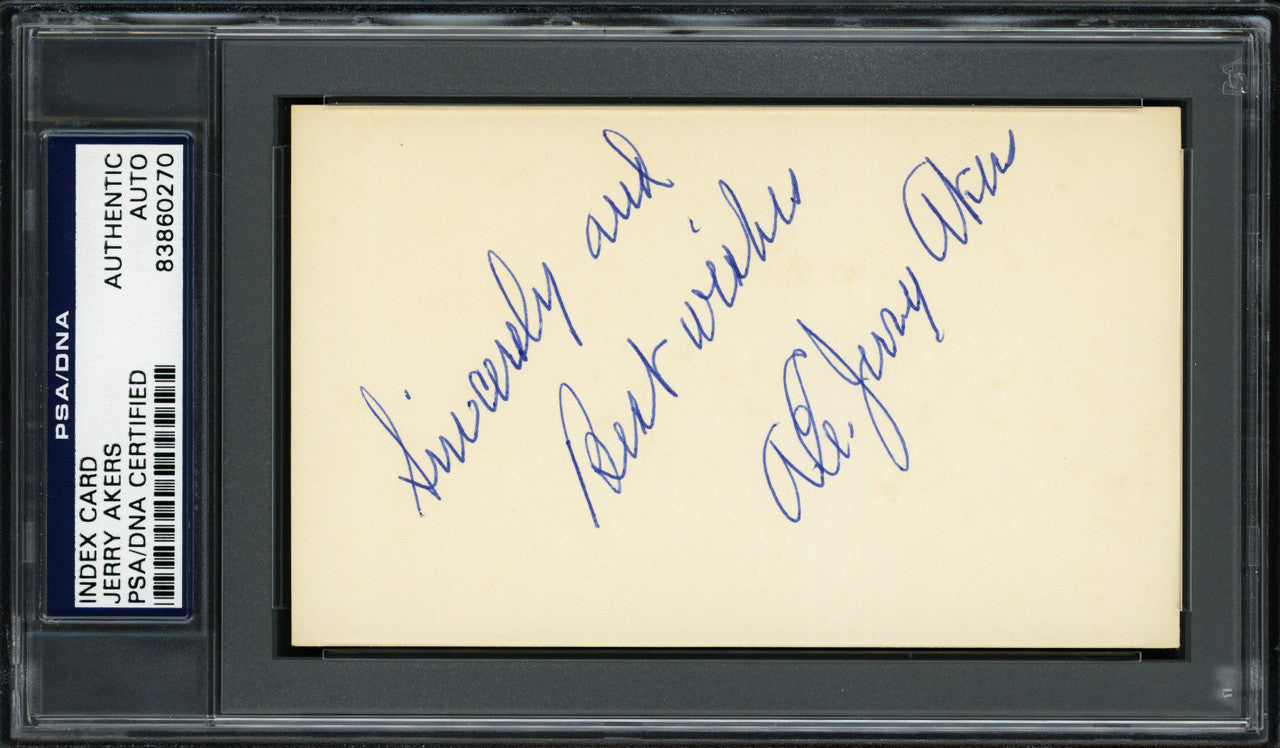 PSA/DNA
INDEX CARD
JERRY AKERS
PSA/DNA CERTIFIED
AUTHENTIC
AUTO
83860270
Sincerely and
Best wishes
Jerry Akers